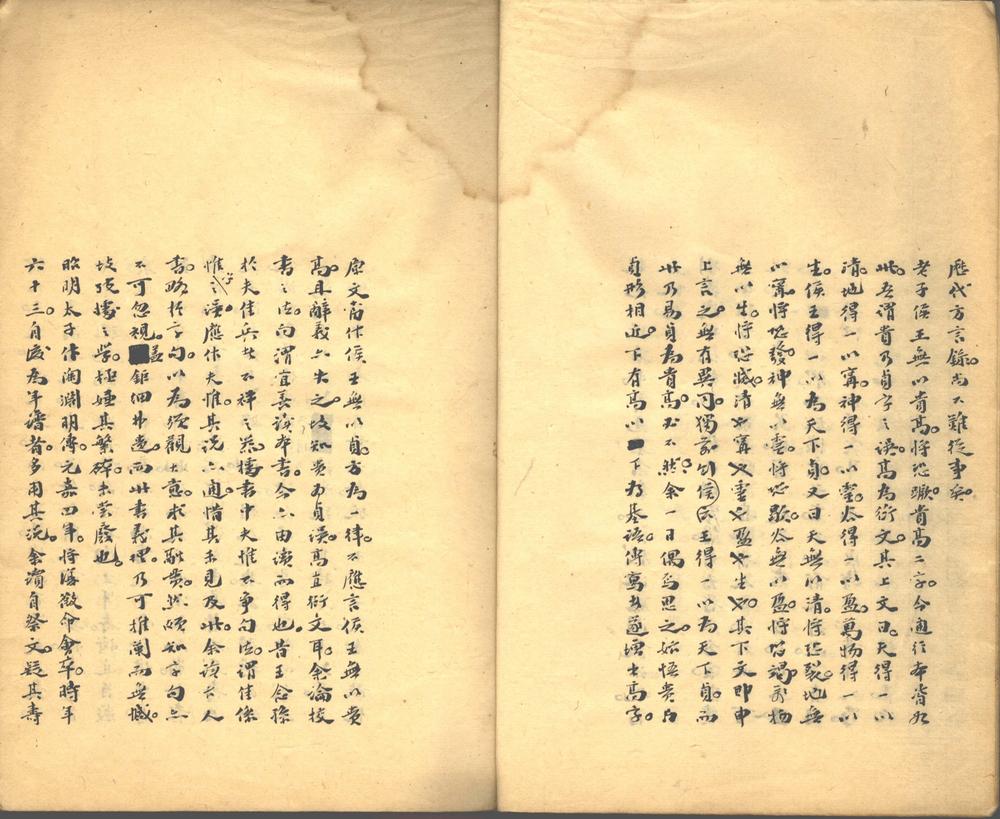 歷代方言錄。尚不難從事矣。
老子侯王無以貴高。將恐蹶。貴高二字。今通行本皆如
此。吾謂貴乃貞字之誤。高為衍文。其上文曰。天得一以
清。地得一以寧。神得一以靈。谷得一以盈。萬物得一以
生。侯王得一以為天下貞。又曰天無以清。將恐裂。地無
以寧。將恐發。神無以靈。將恐歇。谷無以盈。將恐竭。萬物
無以生。將恐滅。清又寧又靈又盈又生又其下文即申
上言之。無有異同。獨前句侯王得一以為天下貞。而
此乃易貞為貴高。必不然。余一日偶爲思之。始悟貴與
貞形相近。下有高以下為基語。傳寫者遂增出高字。
原文當作侯王無以貞。方為一律。不應言侯王無以貴
高。且辭義亦失之。故知貴為貞誤。高宜衍文耳。余論校
書之法。向謂宜善讀本書。今亦由讀而得也。昔王念孫
於夫佳兵者不祥之器。據書中夫惟不爭句法。謂佳係
惟字之誤。應作夫惟。其說亦通。惜其未見及此。余讀古人
書。略於字句。以為須觀大意。求其融貫。然頗知字句亦
不可忽視。蓋鉅細井造。而此書義理乃可推闡而無憾。
故攷據之學。極嫌其繁碎。未嘗廢也。
昭明太子作陶淵明傳。元嘉四年。將復徵命。會卒。時年
六十三。自後為年譜者。多用其說。余讀自祭文。疑其壽